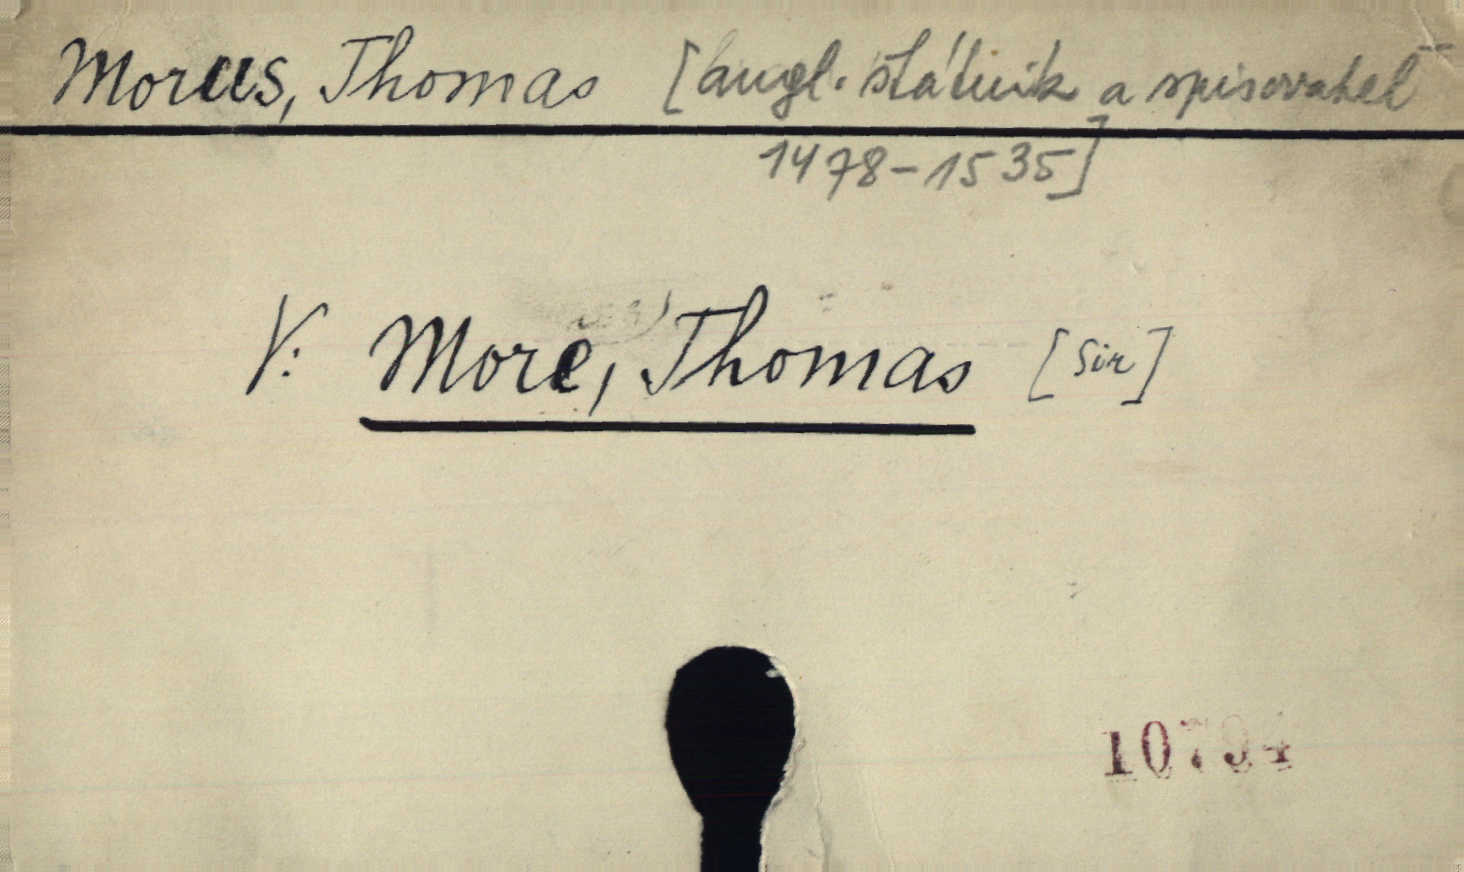 Morus, Thomas [angl. státnik a spisovatel
1478-1535]
V: More, Thomas [Sir]
10794